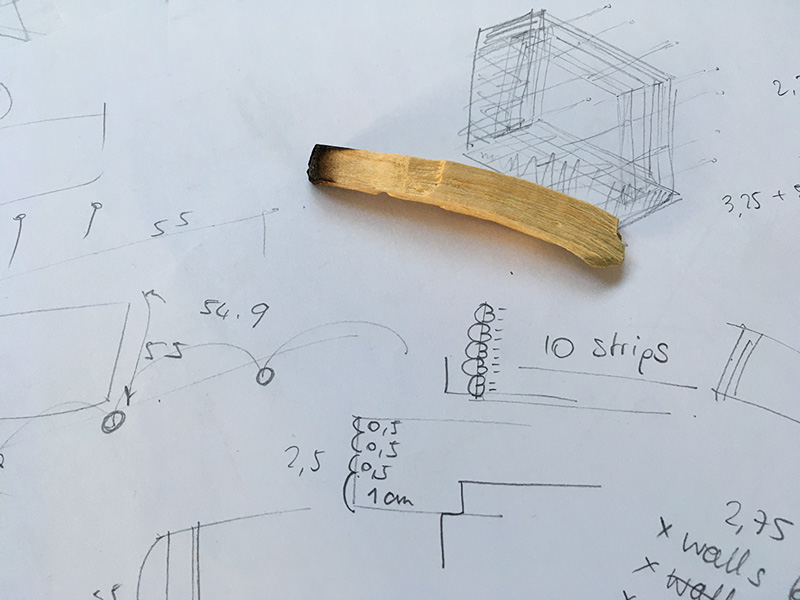 2,7
3,25 +
55
54.9
55
10 strips
0,5
0,5
2,5
0,5
1 cm
2,75
x walls
x wall
x
55